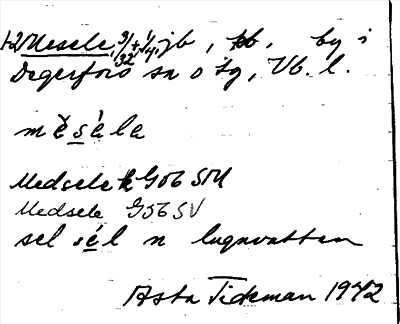 1-2 Mesele, 3/32 + 1/4, jb, kb. by i
Degerfors sn o tg, Vb. l.
mèséla
Medsele k G56 SM
Medsele G56 SV
sel sél n lugnvatten
Asta Tideman 1942